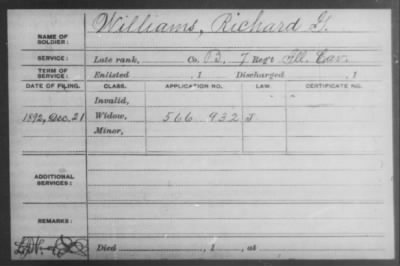 NAME OF SOLDIER: Williams, Richard G.
SERVICE: Late rank, Co. B, 7 Reg't Ill. Cav.
TERM OF SERVICE: Enlisted , 1 Discharged , 1
DATE OF FILING. CLASS. APPLICATION NO. LAW. CERTIFICATE NO.
Invalid,
1892, Dec. 21 Widow, 566 932 J
Minor,
ADDITIONAL SERVICES:
REMARKS:
Died , 1 , at